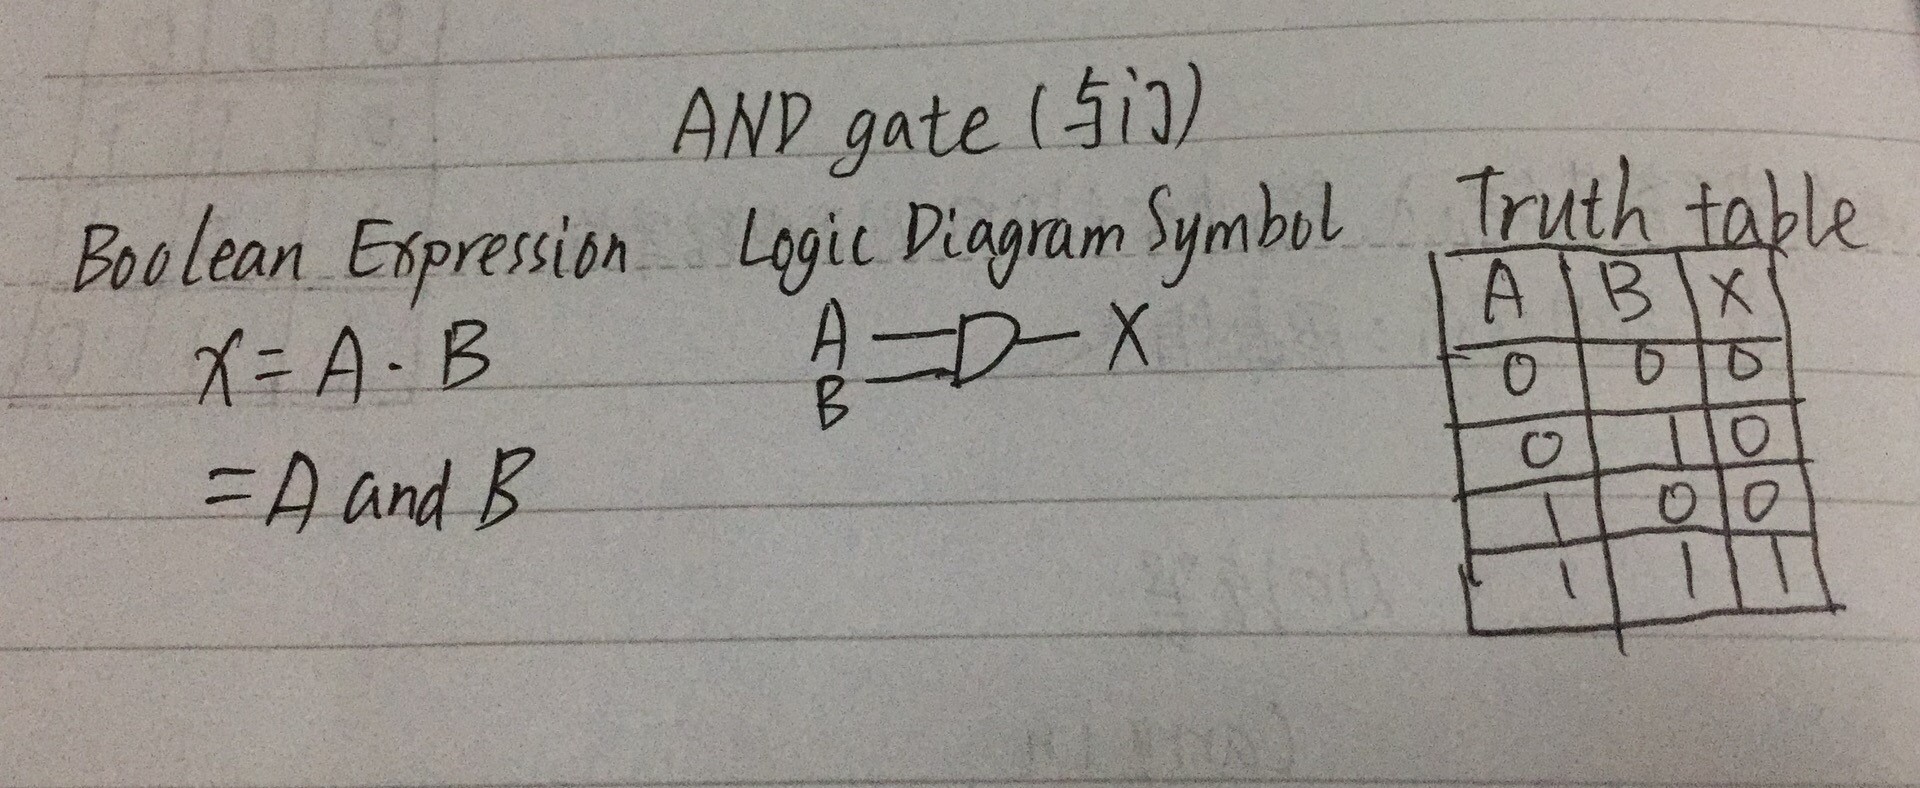 AND gate (与门)
Boolean Expression
X = A · B
= A and B
Logic Diagram Symbol
A
B
X
Truth table
A B X
0 0 0
0 1 0
1 0 0
1 1 1